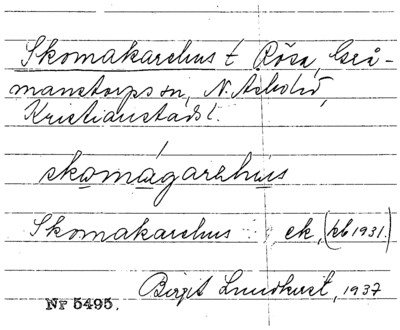 Skomakarehus t Rösa, Grå-
manstorps sn, N. Åsbohd,
Kristianstads l.
skomágarehus
Skomakarehus ek, (kb 1931.)
Birgit Lundkvist, 1937
Nr 5495.